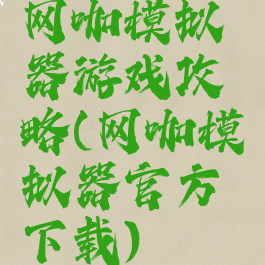 网咖模拟
器游戏攻
略(网咖模
拟器官方
下载)